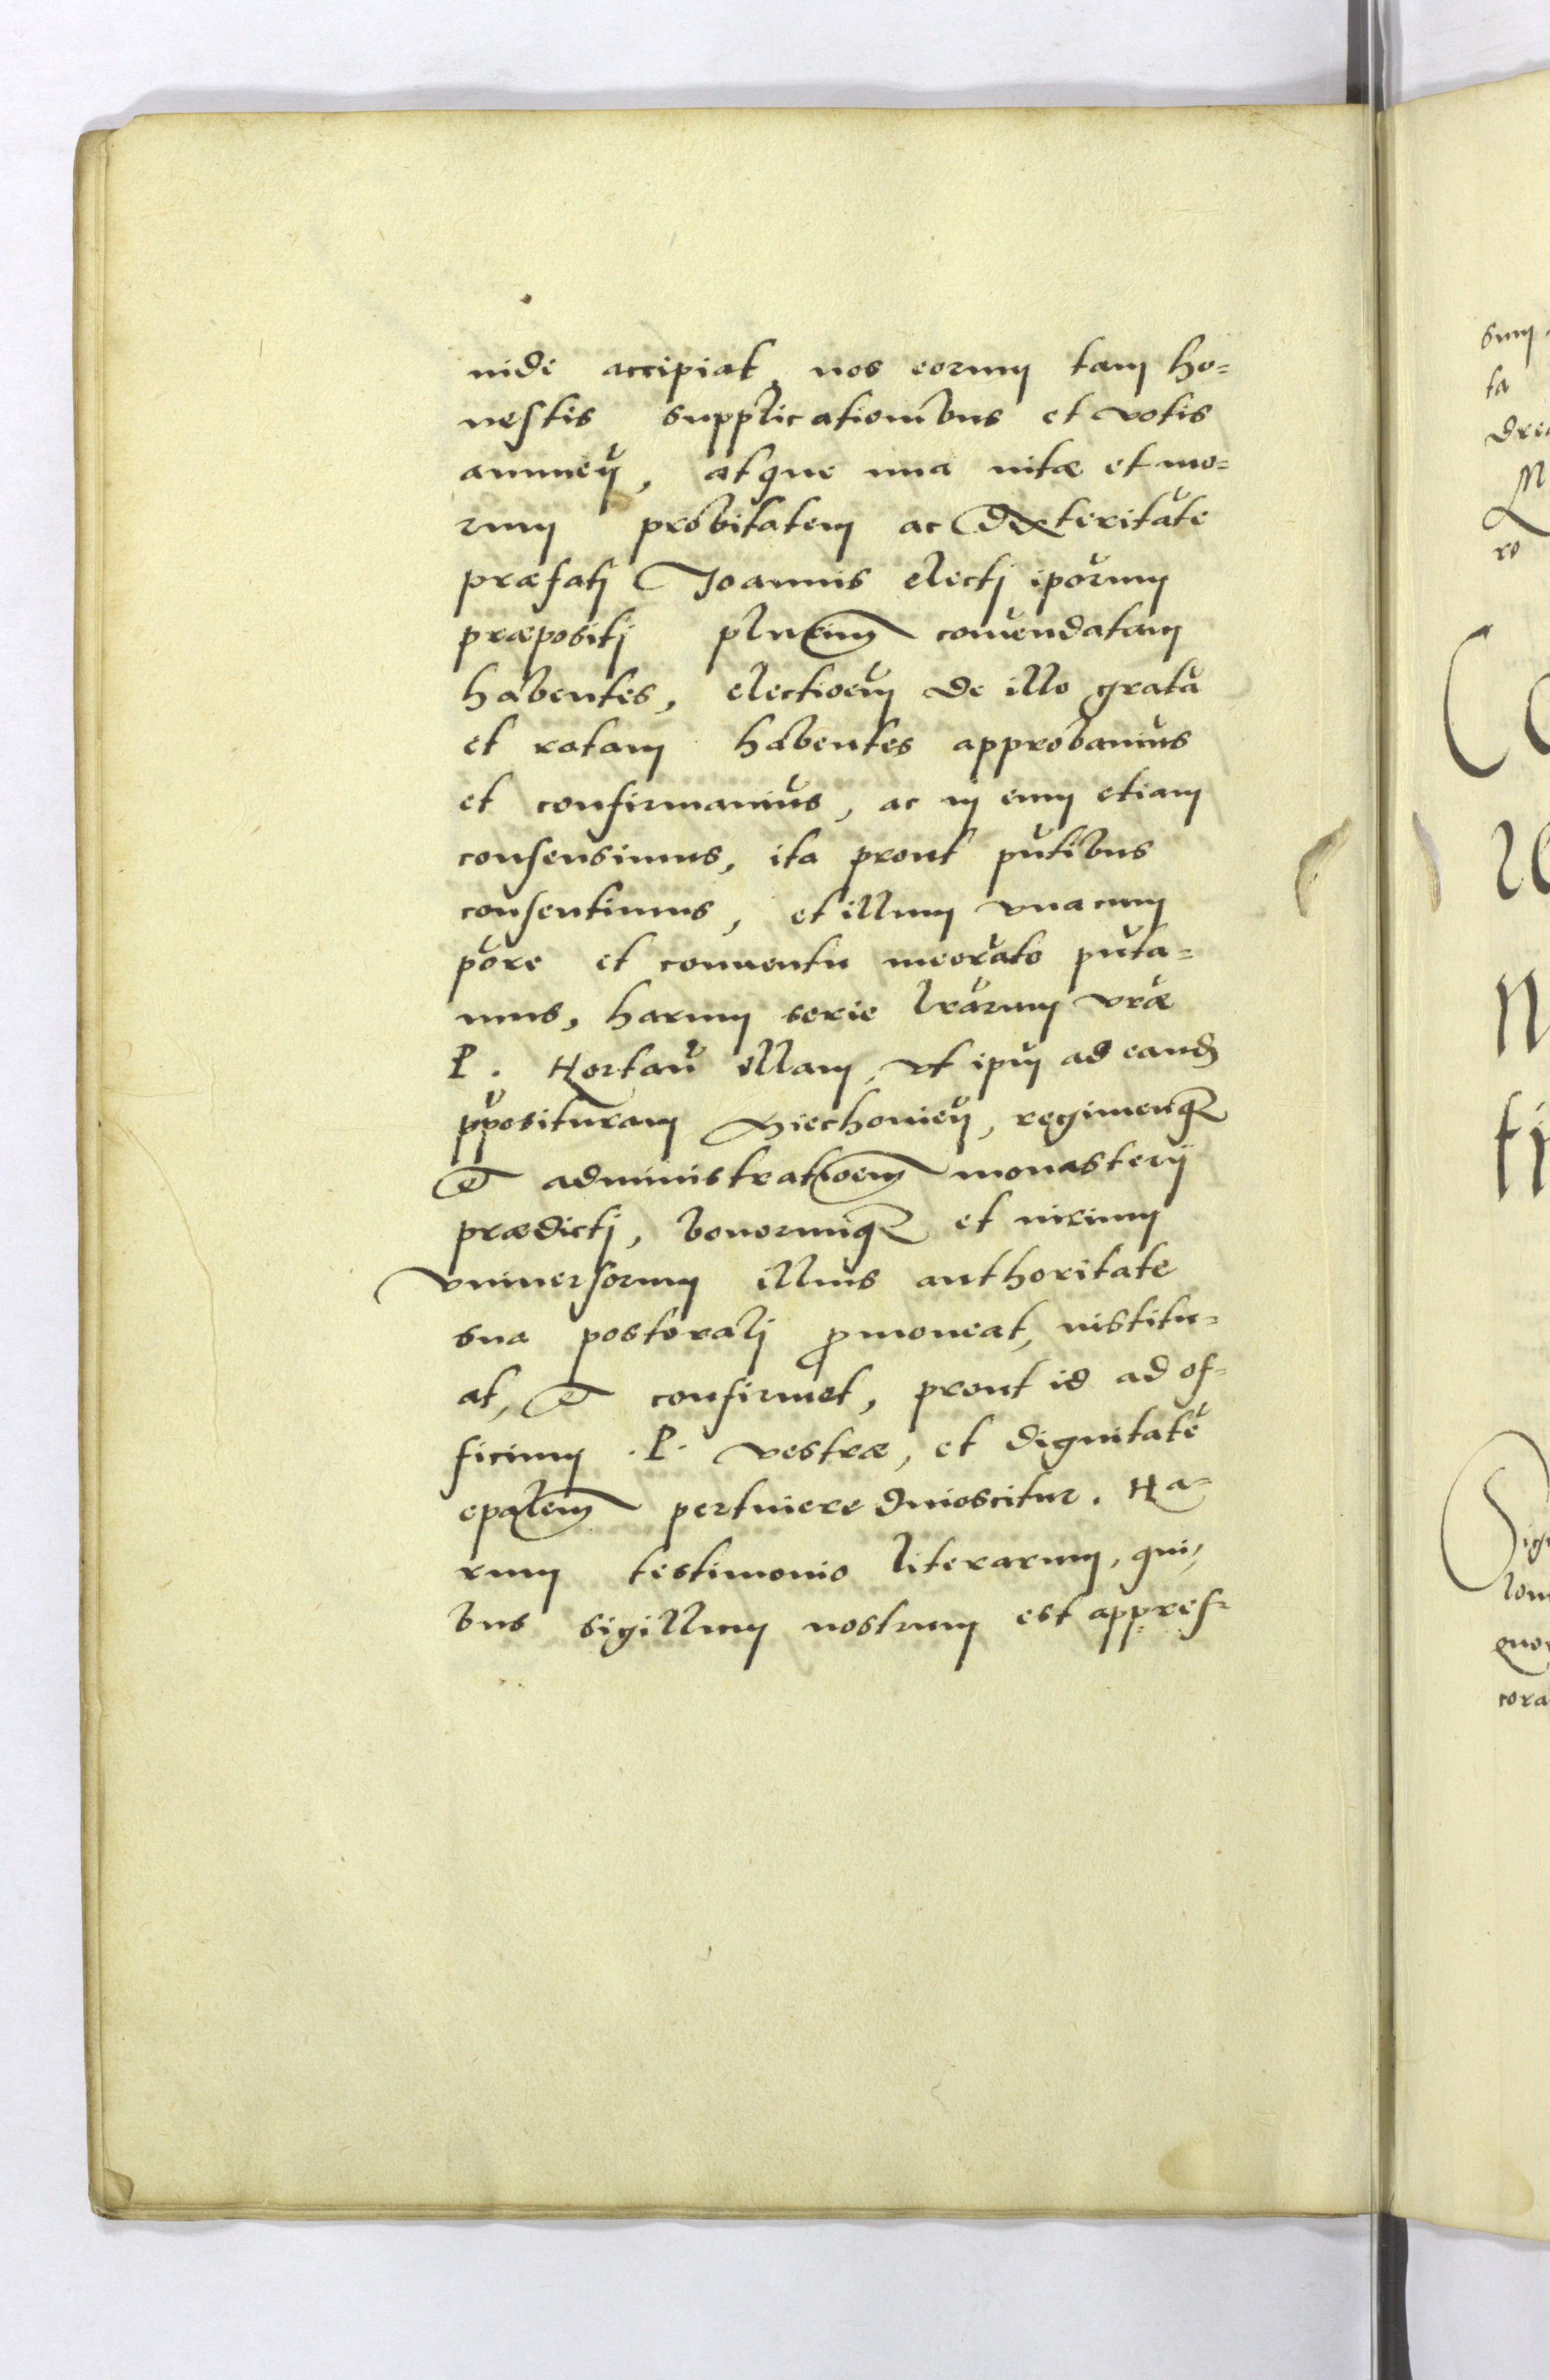 inde accipiat, nos eorum tam ho=
nestis supplicationibus et votis
annueñ, atque una uitæ et mo=
rum probitatem ac dexteritatē
præfati Joannis electi ip̄orum
præpositi plurimū com̄endatam
habentes, electioēm de illo gratā
et ratam habentes approbauimus
et confirmauimus, ac in eum etiam
consensimus, ita prout pn̄tibus
consentimus, et illum vna cum
p̄ore et conuentu meōrato pn̄ta=
mus, harum serie lr̄arum vr̄æ
P. Hortañ illam, vt ip̄m ad eand
pp̄osituram Miechovieñ, regimenq
et administratioēm monasterij
prædicti, bonorumq et iurium
vniuersorum illius authoritate
sua pastorali promoueat, institu=
at, et confirmet, prout id ad of=
ficium .P. vestræ, et dignitatē
epalem pertinere dinoscitur. Ha=
rum testimonio literarum, qui=
bus sigillum nostrum est appres=
sum
ta
ro
ti